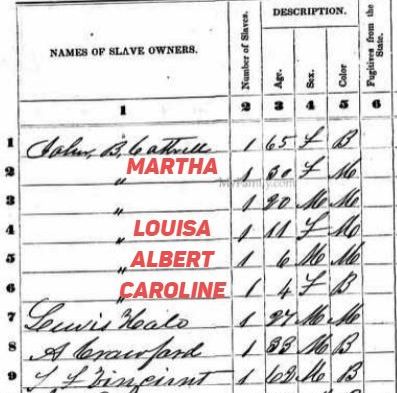 DESCRIPTION.
NAMES OF SLAVE OWNERS. Number of Slaves. Age. Sex. Color Fugitives from the State.
1 2 3 4 5 6
1 John B. 1 65 F B
2 " MARTHA 1 30 F M
3 " 1 20 M M
4 " LOUISA 1 11 F M
5 " ALBERT 1 6 M M
6 " CAROLINE 1 4 F B
7 Lewis Hale 1 27 M M
8 A Crawford 1 33 M B
9 1 68 M B
MyFamily.com